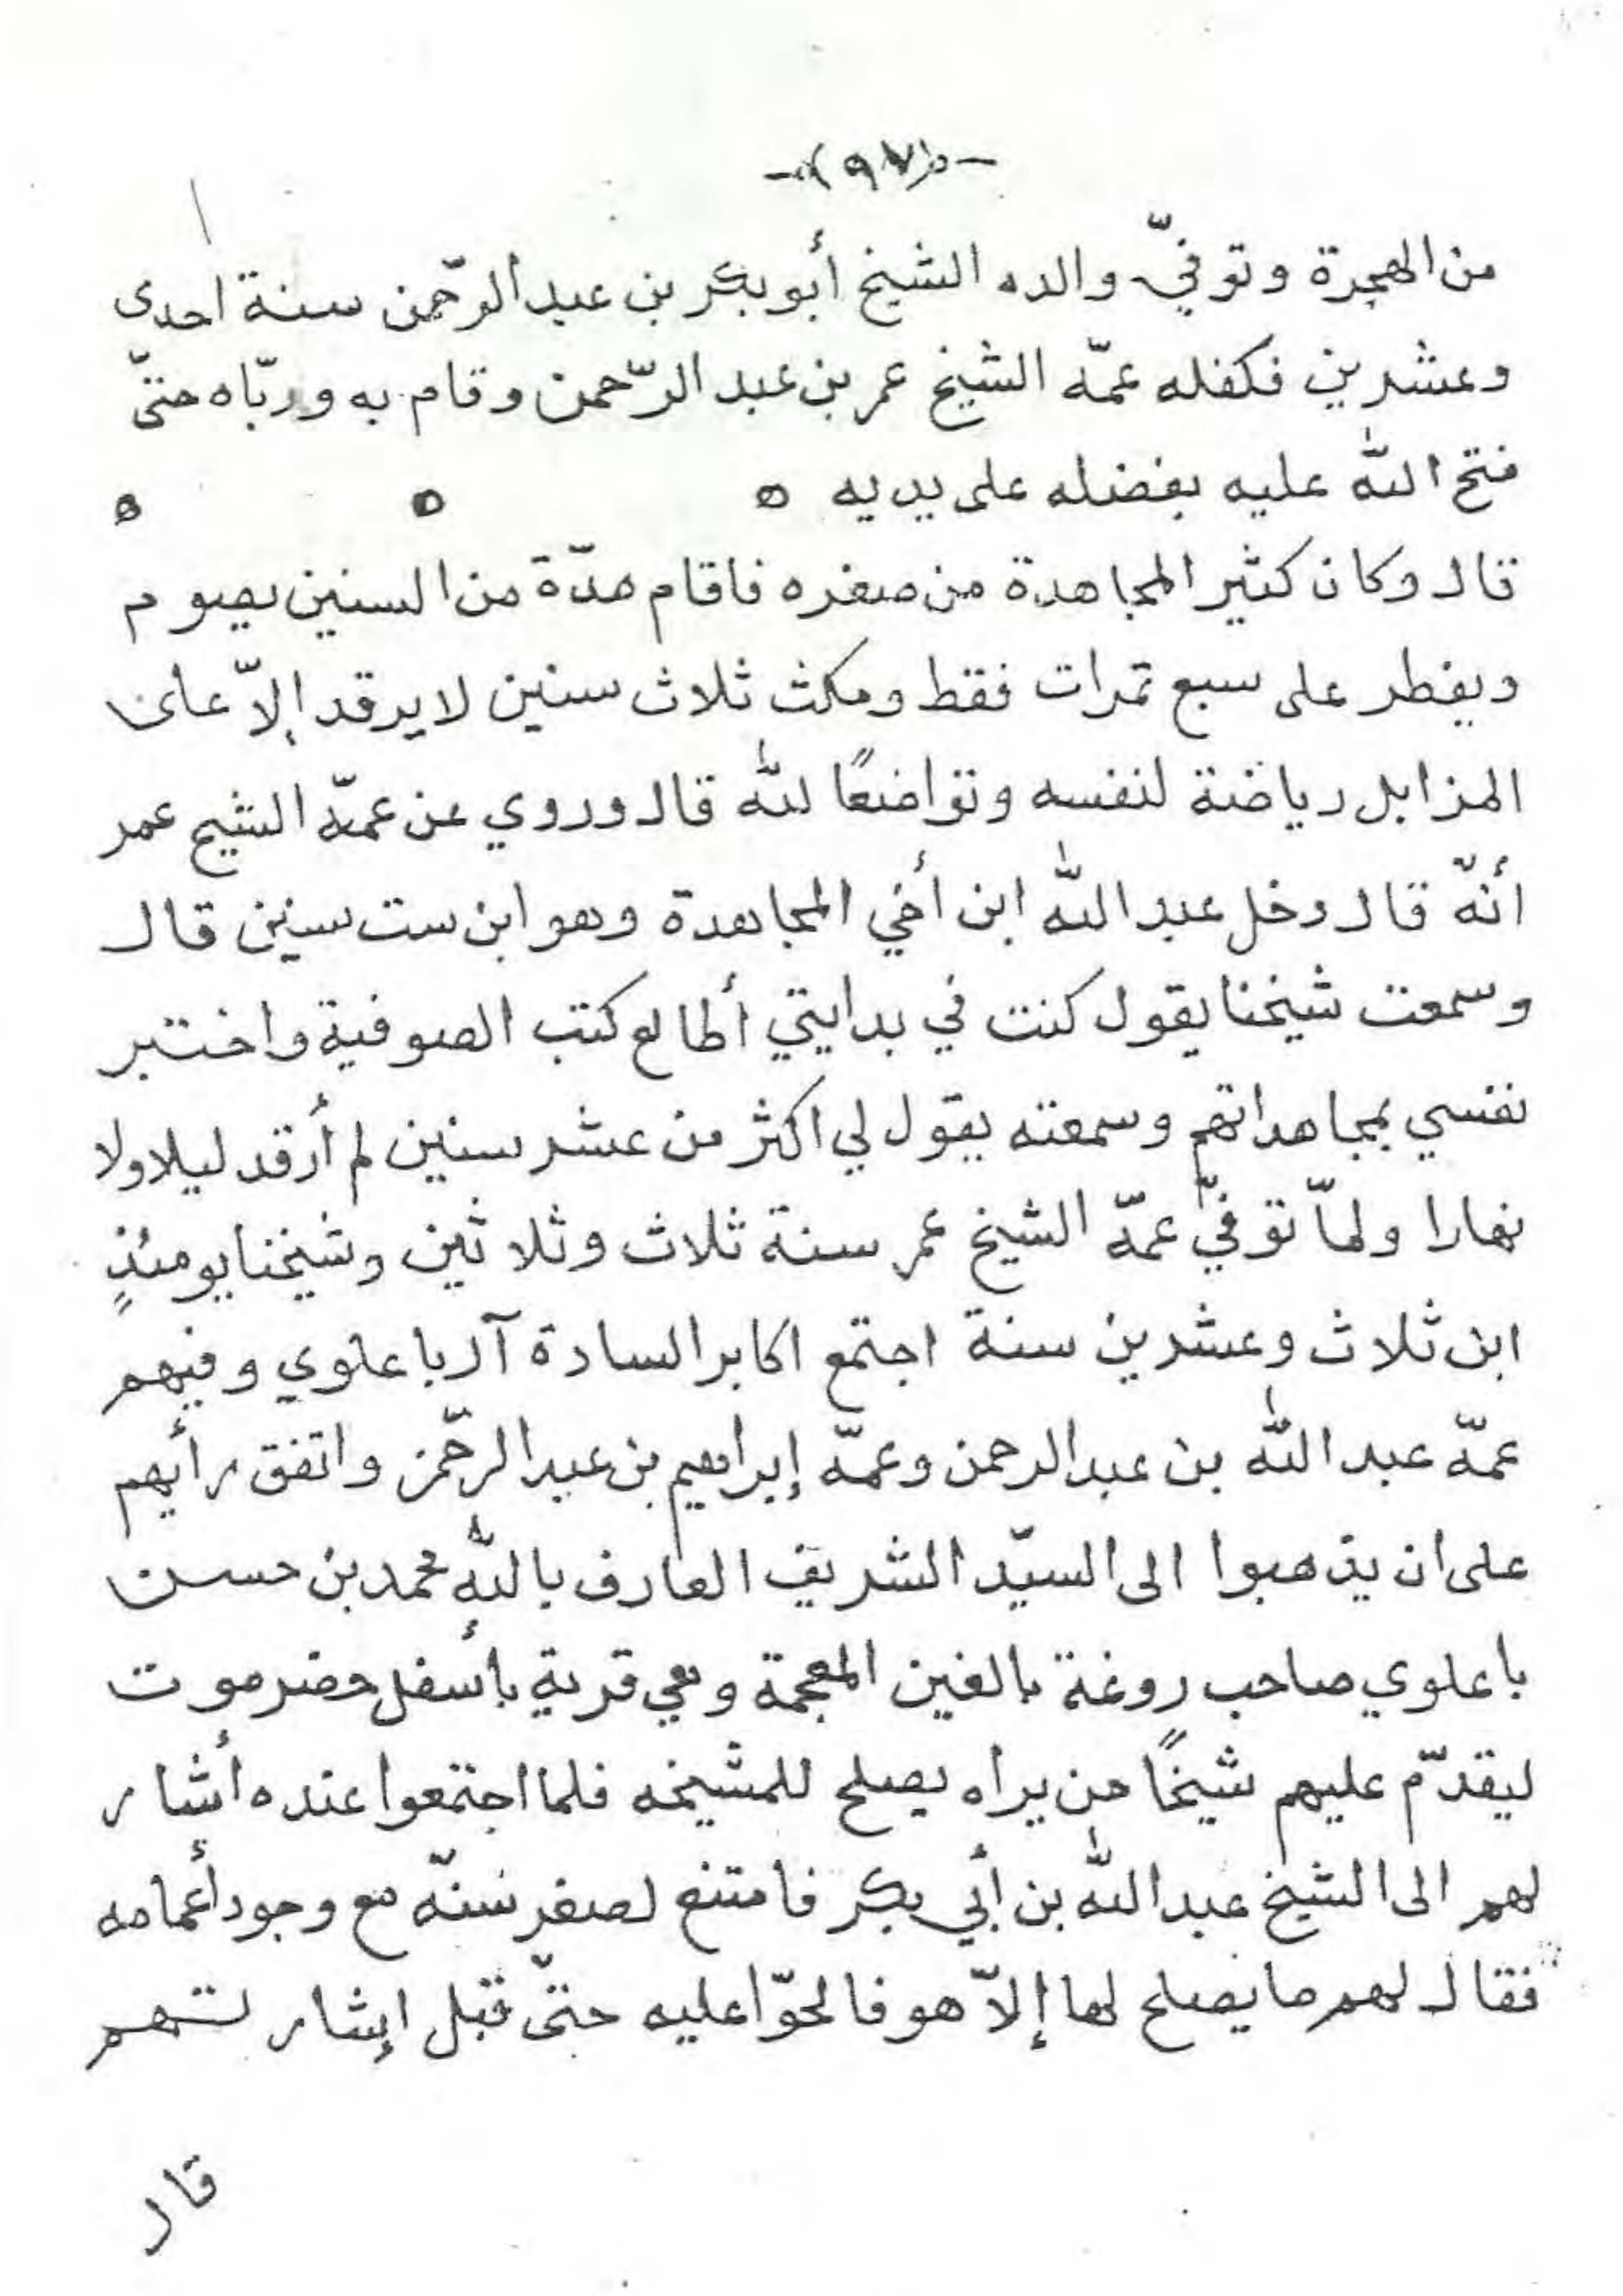 -(٩٧)-
من الهجرة وتوفّي والده الشيخ أبو بكر بن عبد الرّحمن سنة احدى
وعشرين فكفله عمّه الشيخ عمر بن عبد الرّحمن وقام به وربّاه حتىّ
فتح الله عليه بفضله على يديه ه ه ه
قال وكان كثير المجاهدة من صغره فاقام مدّة من السنين يصوم
ويفطر على سبع تمرات فقط ومكث ثلاث سنين لا يرقد إلاّ على
المزابل رياضة لنفسه وتواضعًا لله قال وروي عن عمّه الشيخ عمر
أنّه قال دخل عبد الله ابن أخي المجاهدة وهو ابن ست سنين قال
وسمعت شيخنا يقول كنت في بدايتي أطالع كتب الصوفية واختبر
نفسي بمجاهداتهم وسمعته يقول لي اكثر من عشر سنين لم أرقد ليلا ولا
نهارا ولماّ توفّي عمّه الشيخ عمر سنة ثلاث وثلاثين وشيخنا يومئذٍ
ابن ثلاث وعشرين سنة اجتمع اكابر السادة آل باعلوي وفيهم
عمّه عبد الله بن عبد الرحمن وعمّه إبراهيم بن عبد الرّحمن واتفق رأيهم
على ان يذهبوا الى السيّد الشريف العارف بالله محمد بن حسن
باعلوي صاحب روغة بالغين المعجمة وهي قرية بأسفل حضرموت
ليقدّم عليهم شيخًا من يراه يصلح للمشيخه فلما اجتمعوا عنده أشار
لهم الى الشيخ عبد الله بن أبي بكر فامتنع لصغر سنّه مع وجود أعمامه
فقال لهم ما يصلح لها إلاّ هو فالحّوا عليه حتىّ قبل إشارتهم
قال